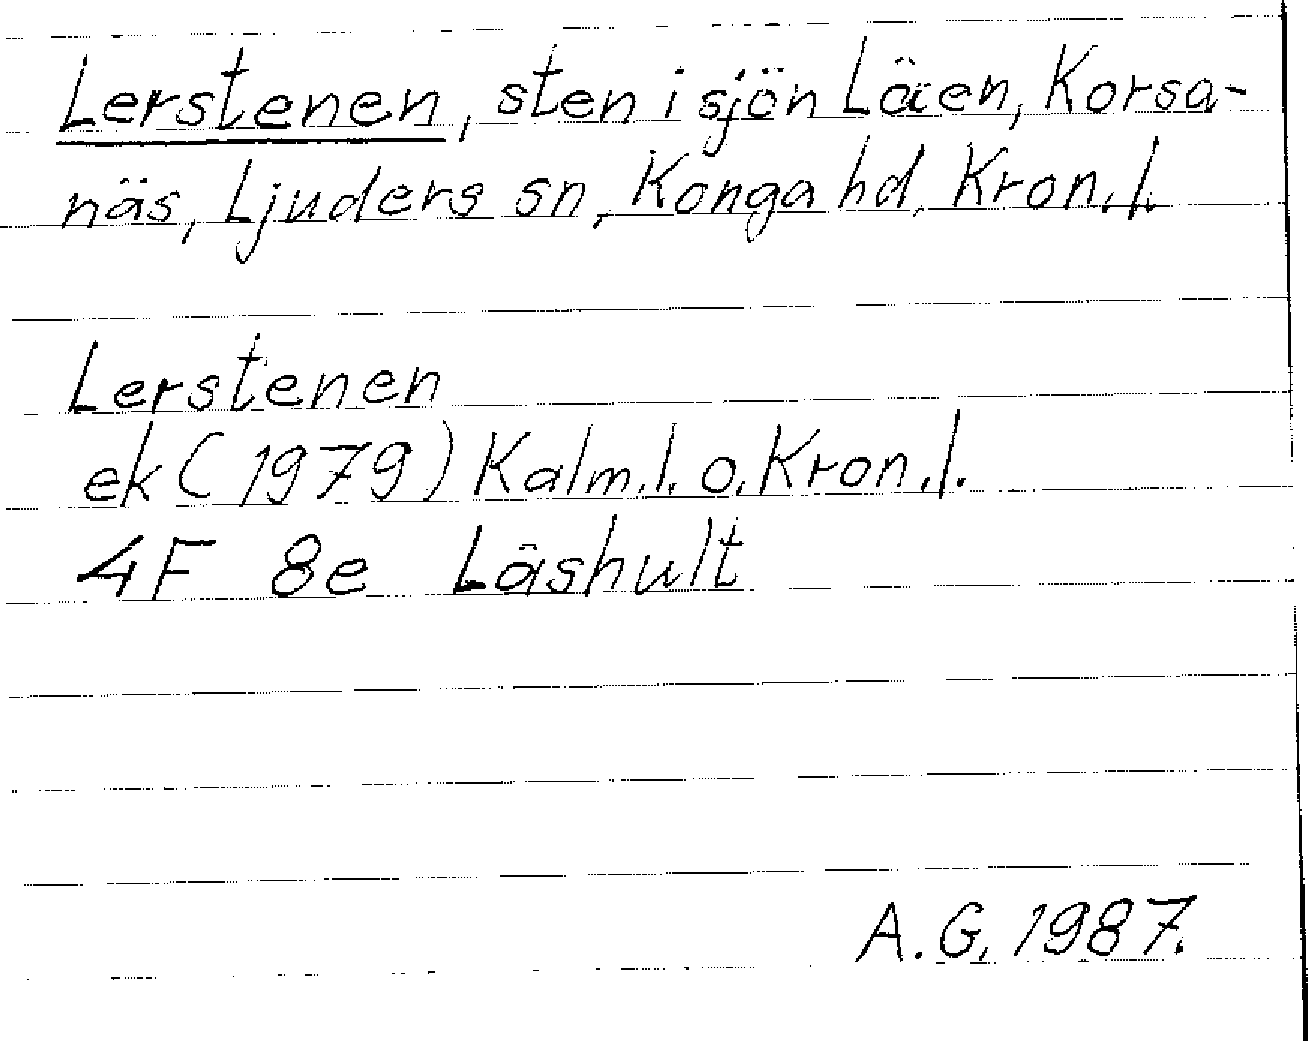 Lerstenen, sten i sjön Läen, Korsa-
näs, Ljuders sn, Konga hd, Kron. l.
Lerstenen
ek (1979) Kalm. l. o. Kron. l.
4F 8e Låshult
A. G. 1987.